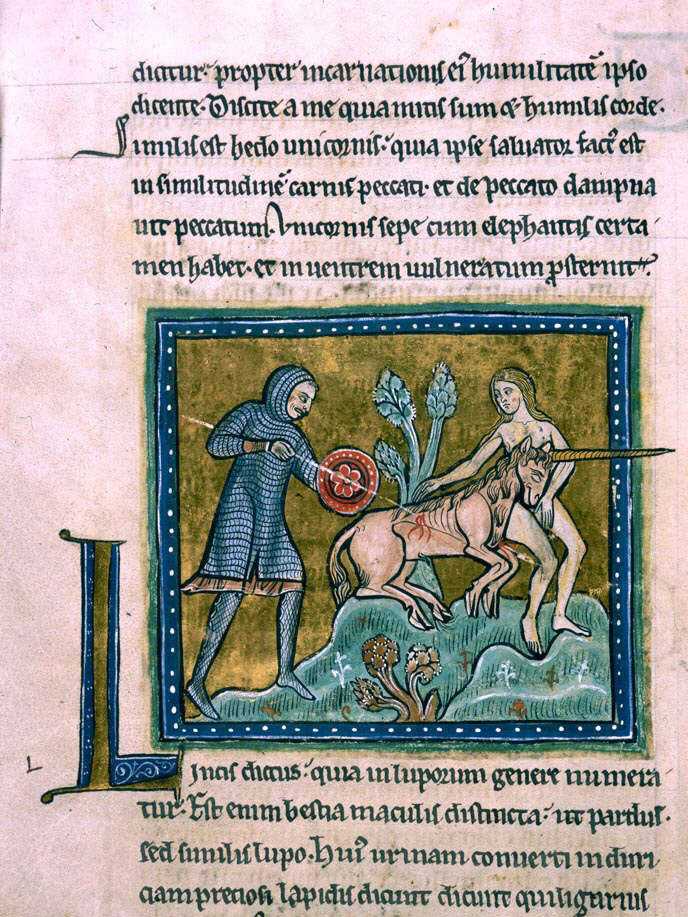 dicitur. propter incarnationis ei' humilitatē ipso
dicente. Discite a me quia mitis sum & humilis corde.
Similis est hedo unicornis. quia ipse saluator fact' est
in similitudinē carnis peccati. et de peccato dampna
uit peccatum. Vnicornis sepe cum elephantis certa
men habet. et in uentrem uulneratum p̄sternit.
L
Lincis dictus. quia in luporum genere numera
tur. Est enim bestia maculis distincta. ut pardus.
sed similis lupo. Hui' urinam conuerti in duri
ciam preciosi lapidis dicunt